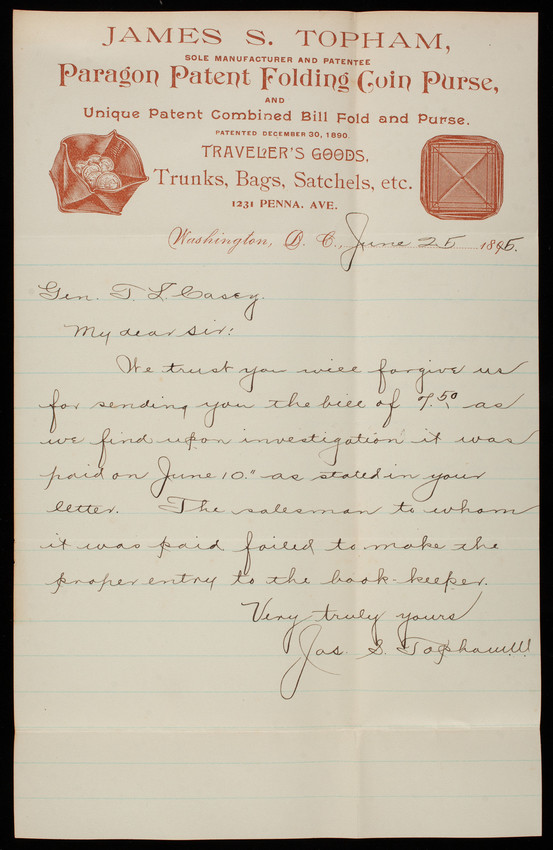 JAMES S. TOPHAM,
SOLE MANUFACTURER AND PATENTEE
Paragon Patent Folding Coin Purse,
AND
Unique Patent Combined Bill Fold and Purse.
PATENTED DECEMBER 30, 1890.
TRAVELER'S GOODS,
Trunks, Bags, Satchels, etc.
1231 PENNA. AVE.
Washington, D. C., June 25 1895.
Gen. T. L. Casey.
My dear sir:
We trust you will forgive us
for sending you the bill of 7.50 as
we find upon investigation it was
paid on June 10" as stated in your
letter. The salesman to whom
it was paid failed to make the
proper entry to the book-keeper.
Very truly yours
Jas. S. Topham